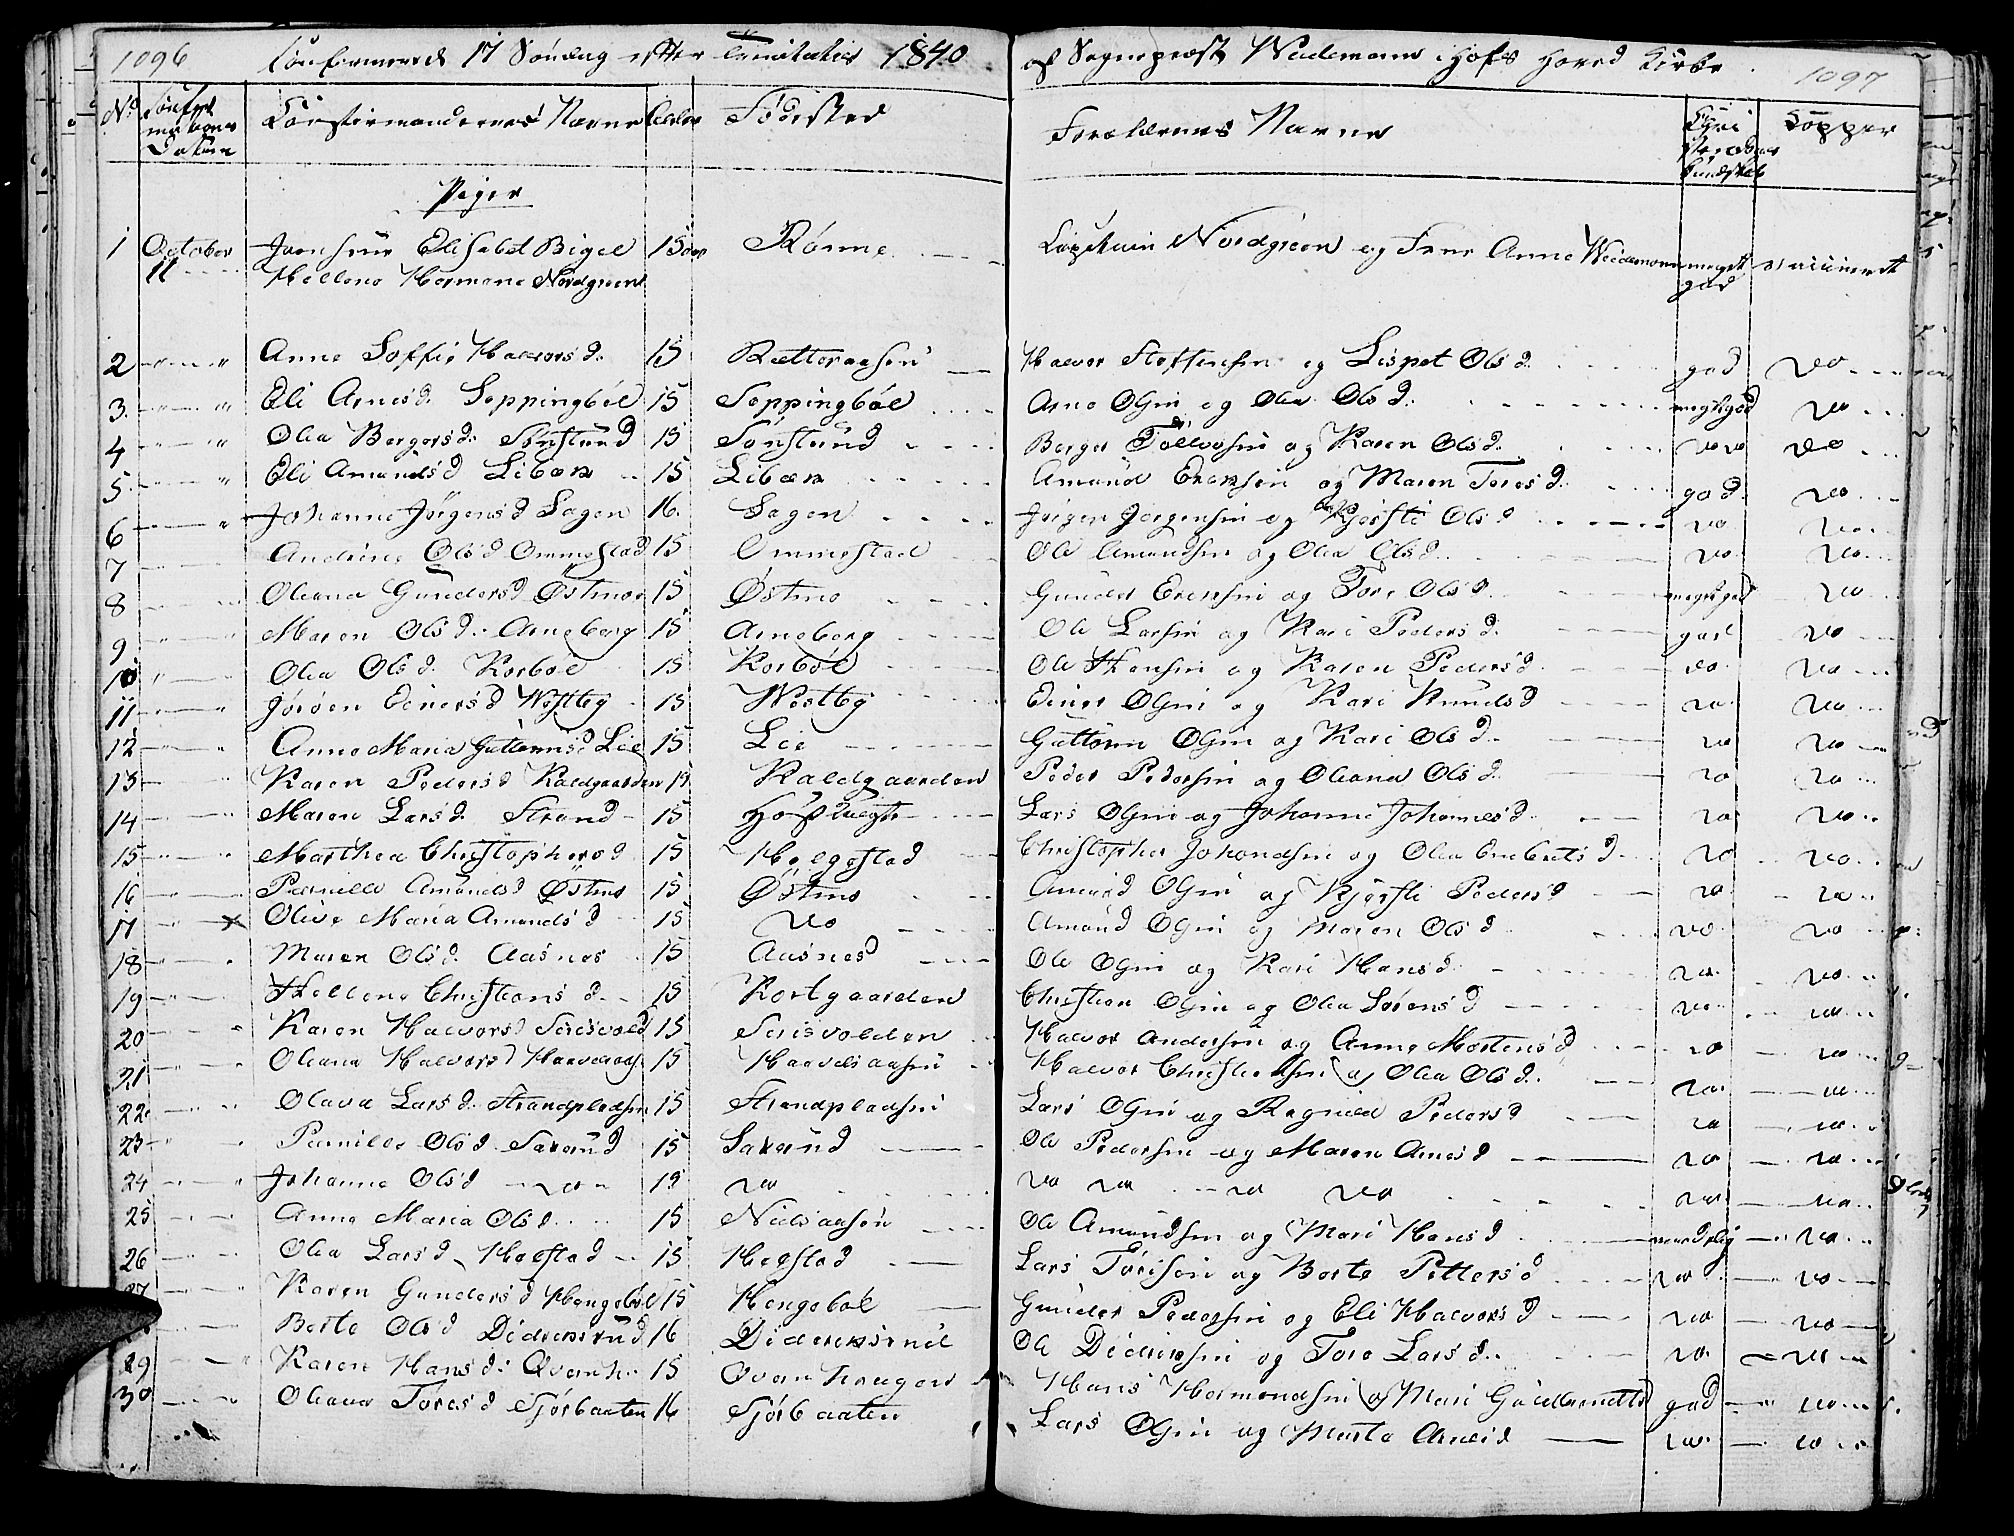 1096 Confirmerede 17 Søndag efter Trinitatis 1840. af Sognepræst Weidemann i Hofs Hoved Kirke. 1097
No Confirmations Datum Confirmandernes Navne Alder Fødested Forældrenes Navne Christendoms Kundskab Kopper
Piger
1 October 11 Jomfrue Elisabet Bigel 15 aar Rönne Capitain Nordgreen og Frue Anne Weidemann meget god vaccineret
Hellene Hermane Nordgreen
2 Anne Soffie Halvorsd. 15 Retteraasen Halvor Steffensen og Lispet Olsd. god do
3 Eli Arnesd. Soppingböl 15 Soppingböl Arne Olsen og Olea Olsd. megetgod do
4 Olia Bergersd. Sönslund 15 Sönslund Berger Tollevsen og Karen Olsd. do do
5 Eli Amundsd Libæk 15 Libæk Amund Ericksen og Maren Toresd god do
6 Johanne Jörgensd Sagen 16. Sagen Jörgen Jörgensen og Kjersti Olsd do do
7 Andrine Olsd Ommestad 15 Ommestad Ole Amundsen og Olea Olsd. do do
8 Oleana Gundersd Östmoe 15 Östmo Gunder Ericksen og Tore Olsd. megetgod do
9 Maren Olsd. Arneberg 15 Arneberg Ole Larsen og Kari Pedersd. god do
10 Olea Olsd. Korböl 15 Korböl Ole Hansen og Karen Pedersd do do
11 Jörgen Einersd Westby 15 Westby Einer Olsen og Kari Knudsd do do
12 Anne Maria Guttormsd Lie 15 Lie Guttorm Olsen og Kari Olsd. do do
13 Karen Pedersd Kaldgaarden 15 Kaldgaarden Peder Pedersen og Oleana Olsd. do do
14 Maren Larsd. Strand 15 Lars Olsen og Johanne Johannesd. do do
15 Marthea Christophersd 15 Helgestad Christopher Johandsen og Olea Embretsd. do do
16 Pernille Amundsd Östmo 15 Östmo Amund Olsen og Kjersti Pedersd do do
17 x Olive Maria Amundsd 15 do Amund Olsen og Maren Olsd do do
18 Maren Olsd. Aasnes 15 Aasnes Ole Olsen og Kari Hansd. do do
19 Hellene Christiansd. 15 Kortgaarden Christian Olsen og Olea Sörensd do do
20 Karen Halvorsd Seisvold 15 Seisvolden Halvor Andersen og Anne Mortensd do do
21 Oleana Halvorsd Haavelsaas 15 Haavelsaasen Halvor Christensen og Olea Olsd. do do
22 Olava Larsd. Strandpladsen 15 Strandpladsen Lars Olsen og Ragnild Pedersd do do
23 Pernille Olsd. Saxund 15 Saxund Ole Pedersen og Maren Arnesd do do
24 Johanne Olsd do 19 do do do do do do do
25 Anne Maria Olsd. 15 Nielsaasen Ole Amundsen og Mari Hansd maadelig do
26 Olea Larsd. Hegstad 15 Hegstad Lars Töresen og Berte Pettersd do do
27 Karen Gundersd Hengeböl 15 Hengeböl Gunder Pedersen og Eli Halvorsd do do
Berte Olsd Didriksrud 16 Didriksrud Ole Didriksen og Tore Larsd. do do
29 Karen Hansd. Qvanh. 15 Qvanhaugen Hans Hermandsen og Mari Guldbrandsd god do
30 Oleana Töresd Sjörbaaten 16 Sjörbaaten Lars Olsen og Marte do do